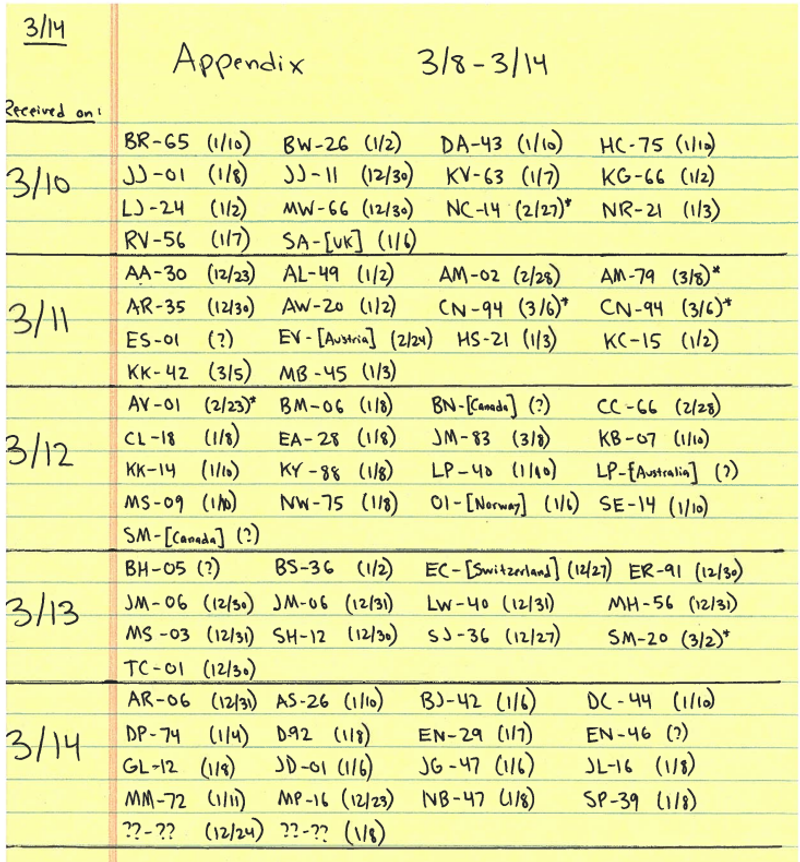 3/14
Appendix 3/8-3/14
Received on:
BR-65 (1/10) BW-26 (1/2) DA-43 (1/10) HC-75 (1/10)
3/10 JJ-01 (1/8) JJ-11 (12/30) KV-63 (1/7) KG-66 (1/2)
LJ-24 (1/2) MW-66 (12/30) NC-14 (2/27)* NR-21 (1/3)
RV-56 (1/7) SA-[UK] (1/6)
AA-30 (12/23) AL-49 (1/2) AM-02 (2/28) AM-79 (3/8)*
3/11 AR-35 (12/30) AW-20 (1/2) CN-94 (3/6)* CN-94 (3/6)*
ES-01 (?) EV-[Austria] (2/24) HS-21 (1/3) KC-15 (1/2)
KK-42 (3/5) MB-45 (1/3)
AV-01 (2/23)* BM-06 (1/8) BN-[Canada] (?) CC-66 (2/28)
3/12 CL-18 (1/8) EA-28 (1/8) JM-83 (3/8) KB-07 (1/10)
KK-14 (1/10) KY-88 (1/8) LP-40 (1/10) LP-[Australia] (?)
MS-09 (1/10) NW-75 (1/8) OI-[Norway] (1/6) SE-14 (1/10)
SM-[Canada] (?)
BH-05 (?) BS-36 (1/2) EC-[Switzerland] (12/27) ER-91 (12/30)
3/13 JM-06 (12/30) JM-06 (12/31) LW-40 (12/31) MH-56 (12/31)
MS-03 (12/31) SH-12 (12/30) SJ-36 (12/27) SM-20 (3/2)*
TC-01 (12/30)
AR-06 (12/31) AS-26 (1/10) BJ-42 (1/6) DC-44 (1/10)
3/14 DP-74 (1/4) D92 (1/8) EN-29 (1/7) EN-46 (?)
GL-12 (1/8) JD-01 (1/6) JG-47 (1/6) JL-16 (1/8)
MM-72 (1/11) MP-16 (12/23) NB-47 (1/8) SP-39 (1/8)
??-?? (12/24) ??-?? (1/8)